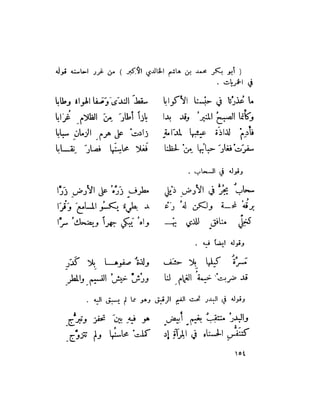 ( أبو بكر محمد بن هاشم الخالدي الأكبر ) من غرر احاسنه قوله
في الخمريات .
ما عُذرُنا في حبسنا الأكوابا سقطَ الندى وصفا الهواء وطابا
وكأنما الصبحُ المنيرُ وقد بدا بازاً أطارَ مِنَ الظلامِ غُرابا
فأدِمْ لذاذةَ عيشها بمدامةٍ زادتْ على هرمِ الزمانِ شبابا
سفرتْ فغارَ حبابُها مِنْ لحظنا فعلا محاسنَها فصارَ نقابا
وقوله في السحاب .
سحابٌ يجُرُّ في الأرضِ ذيلَيْ مطرفٍ زرَّهُ على الأرضِ زرَّا
برقُهُ لمحةٌ ولكن لهُ رعدٌ بطيءٌ يكسو المسامعَ وَقْرَا
كخليٍّ منافقٍ للذي يهواهُ يبكي جهراً ويضحكُ سرَّا
وقوله ايضاً فيه .
مسرّةٌ كيلها بلا حشف ولذةٌ صفوها بلا كَدَرِ
قد ضربتْ خيمةُ الغمامِ لنا ورُشَّ خيشُ النسيمِ والمطرِ
وقوله في البدر تحت الغيم الرقيق وهو مما لم يسبق اليه .
والبدرُ منتقبٌ بغيمٍ أبيضٍ هو فيهِ بين تخفزٍ وتبرُّجِ
كتنفُّسِ الحسناءِ في المرآةِ إذ كملتْ محاسنُها ولم تتزوَّجِ
١٥٤